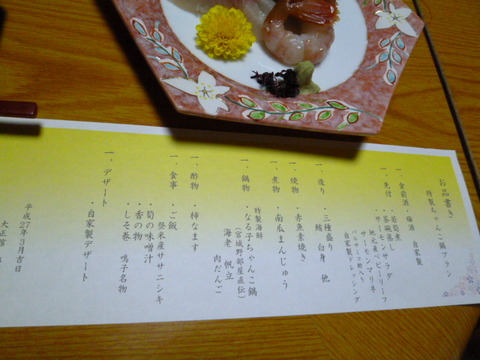 お品書き
特製ちゃんこ鍋プラン
一・食前酒・梅酒 自家製
一・先付
・茶碗蒸し
・サーモンマリネ
自家製ドレッシング
一・造り・三種盛り
鮪 白身 他
一・焼物・赤魚素焼き
一・煮物・南瓜まんじゅう
一・鍋物・なる子ちゃんこ鍋
特製海鮮
(宮城野部屋直伝)
海老 帆立 肉だんご
一・酢物・柿なます
一・食事・ご飯
登米産ササニシキ
・筍の味噌汁
・香の物
・しそ巻 鳴子名物
一・デザート
・自家製デザート
平成27年3月吉日